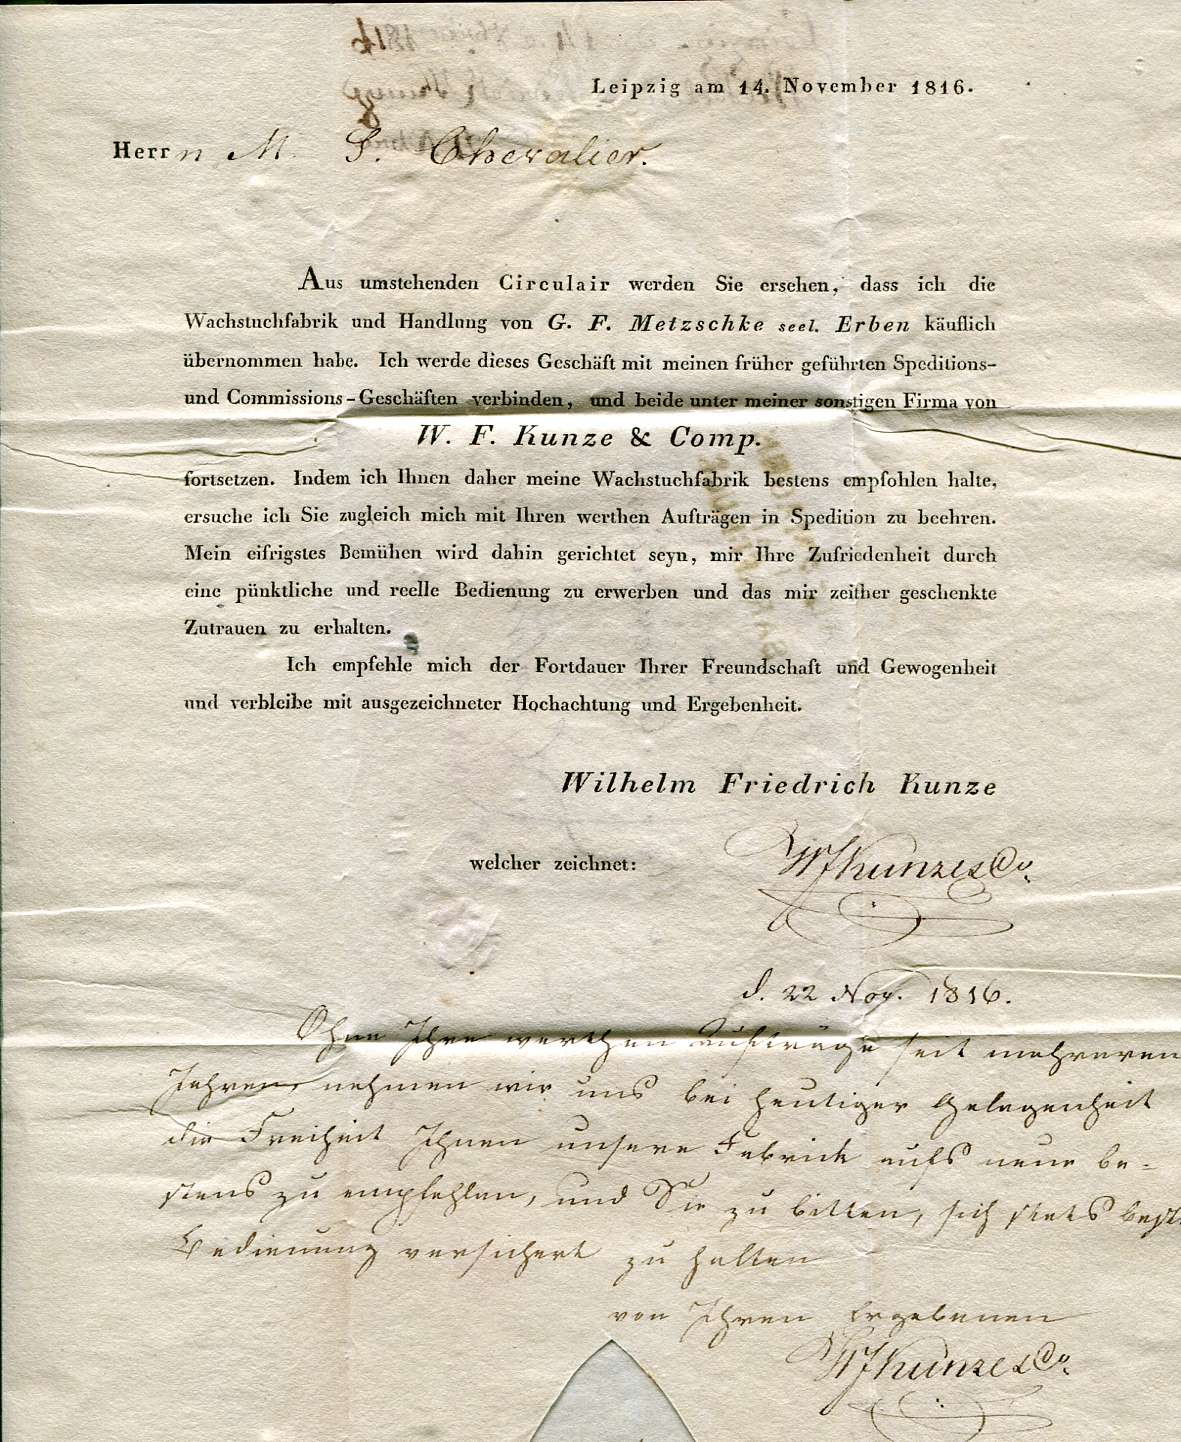 Leipzig am 14. November 1816.
Herrn M. S. Chevalier.
Aus umstehenden Circulair werden Sie ersehen, dass ich die
Wachstuchfabrik und Handlung von G. F. Metzschke seel. Erben käuflich
übernommen habe. Ich werde dieses Geschäft mit meinen früher geführten Speditions-
und Commissions-Geschäften verbinden, und beide unter meiner sonstigen Firma von
W. F. Kunze & Comp.
fortsetzen. Indem ich Ihnen daher meine Wachstuchfabrik bestens empfohlen halte,
ersuche ich Sie zugleich mich mit Ihren werthen Aufträgen in Spedition zu beehren.
Mein eifrigstes Bemühen wird dahin gerichtet seyn, mir Ihre Zufriedenheit durch
eine pünktliche und reelle Bedienung zu erwerben und das mir zeither geschenkte
Zutrauen zu erhalten.
Ich empfehle mich der Fortdauer Ihrer Freundschaft und Gewogenheit
und verbleibe mit ausgezeichneter Hochachtung und Ergebenheit.
Wilhelm Friedrich Kunze
welcher zeichnet: WFKunze & Co.
d. 22 Nov. 1816.
Ohne Ihre werthen Aufträge seit mehreren
Jahren, nehmen wir uns bei heutiger Gelegenheit
die Freiheit Ihnen unsere Fabrick aufs neue be-
stens zu empfehlen, und Sie zu bitten, sich stets best
Bedienung versichert zu halten
von Ihren Ergebenen
WFKunze & Co.